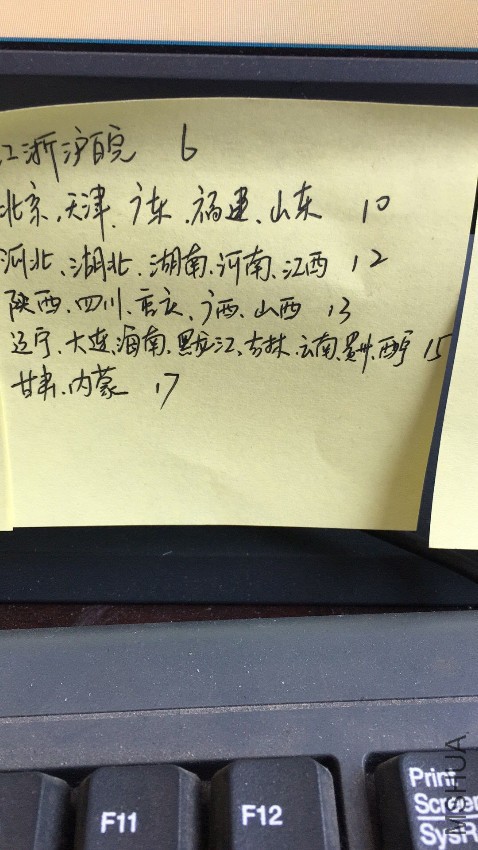 江浙沪皖 6
北京、天津、广东、福建、山东 10
河北、湖北、湖南、河南、江西 12
陕西、四川、重庆、广西、山西 13
辽宁、大连、海南、黑龙江、吉林、云南、贵州、西宁 15
甘肃、内蒙 17
F11
F12
Print
Screen
SysR
MISHUA